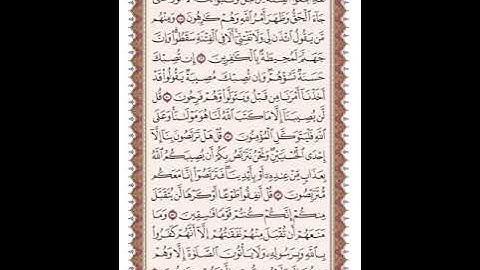 جَآءَ ٱلْحَقُّ وَظَهَرَ أَمْرُ ٱللَّهِ وَهُمْ كَٰرِهُونَ ۝ وَمِنْهُم
مَّن يَقُولُ ٱئْذَن لِّى وَلَا تَفْتِنِّىٓ أَلَا فِى ٱلْفِتْنَةِ سَقَطُوا۟ وَإِنَّ
جَهَنَّمَ لَمُحِيطَةٌۢ بِٱلْكَٰفِرِينَ ۝ إِن تُصِبْكَ
حَسَنَةٌ تَسُؤْهُمْ وَإِن تُصِبْكَ مُصِيبَةٌ يَقُولُوا۟ قَدْ
أَخَذْنَآ أَمْرَنَا مِن قَبْلُ وَيَتَوَلَّوا۟ وَّهُمْ فَرِحُونَ ۝ قُل
لَّن يُصِيبَنَآ إِلَّا مَا كَتَبَ ٱللَّهُ لَنَا هُوَ مَوْلَىٰنَا وَعَلَى
ٱللَّهِ فَلْيَتَوَكَّلِ ٱلْمُؤْمِنُونَ ۝ قُلْ هَلْ تَرَبَّصُونَ بِنَآ إِلَّآ
إِحْدَى ٱلْحُسْنَيَيْنِ وَنَحْنُ نَتَرَبَّصُ بِكُمْ أَن يُصِيبَكُمُ ٱللَّهُ
بِعَذَابٍ مِّنْ عِندِهِۦٓ أَوْ بِأَيْدِينَا فَتَرَبَّصُوٓا۟ إِنَّا مَعَكُم
مُّتَرَبِّصُونَ ۝ قُلْ أَنفِقُوا۟ طَوْعًا أَوْ كَرْهًا لَّن يُتَقَبَّلَ
مِنكُمْ إِنَّكُمْ كُنتُمْ قَوْمًا فَٰسِقِينَ ۝ وَمَا
مَنَعَهُمْ أَن تُقْبَلَ مِنْهُمْ نَفَقَٰتُهُمْ إِلَّآ أَنَّهُمْ كَفَرُوا۟
بِٱللَّهِ وَبِرَسُولِهِۦ وَلَا يَأْتُونَ ٱلصَّلَوٰةَ إِلَّا وَهُمْ